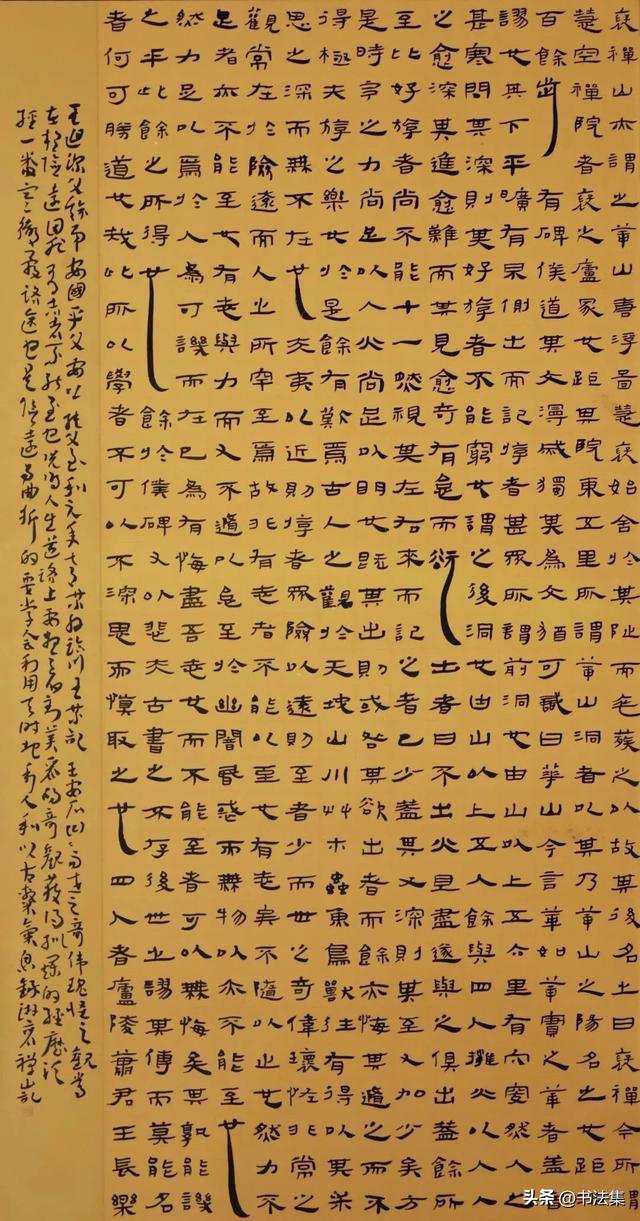 褒禪山亦謂之華山唐浮圖慧褒始舍於其阯而卒葬之以故其後名之曰褒禪今所謂
慧空禪院者褒之廬冢也距其院東五里所謂華山洞者以其乃華山之陽名之也距
百餘步有碑僕道其文漫滅獨其為文猶可識曰華山今言華如華實之華者蓋音
謬也其下平曠有泉側出而記遊者甚眾所謂前洞也由山以上五六里有穴窈然入之
甚寒問其深則其好遊者不能窮也謂之後洞也由山以上五人餘與四人擁火以入入
之愈深其進愈難而其見愈奇有怠而欲出者曰不出火且盡遂與之俱出蓋餘所
至比好遊者尚不能十一然視其左右來而記之者已少蓋其又深則其至又加少矣方
是時予之力尚足以入火尚足以明也既其出則或咎其欲出者而餘亦悔其隨之而不
得極夫遊之樂也於是餘有歎焉古人之觀於天地山川艸木蟲魚鳥獸往有得以其求
思之深而無不在也夫夷以近則遊者眾險以遠則至者少而世之奇偉瓌怪非常之
觀常在於險遠而人之所罕至焉故非有志者不能以至也有志矣不隨以止也然力不
足者亦不能至也有志與力而又不隨以怠至於幽闇昏惑而無物以亦不能至也
然力足以為於人為可譏而在己為有悔盡吾志也而不能至者可以無悔矣其孰能譏
之乎此餘之所得也餘於僕碑又以悲夫古書之不存後世之謬其傳而莫能名
者何可勝道也哉此所以學者不可以不深思而慎取之也四人者廬陵蕭君王長樂
王迴深父餘弟安國平父安上純父至和元年七月某日臨川王某記 王安石 之奇偉瑰怪之觀常
在險遠 有志者不能至也 人生道路上要想 看到美麗的奇觀 的經歷
經一番 的要學會利用天時地利人和以 氣息錄游褒禪山記